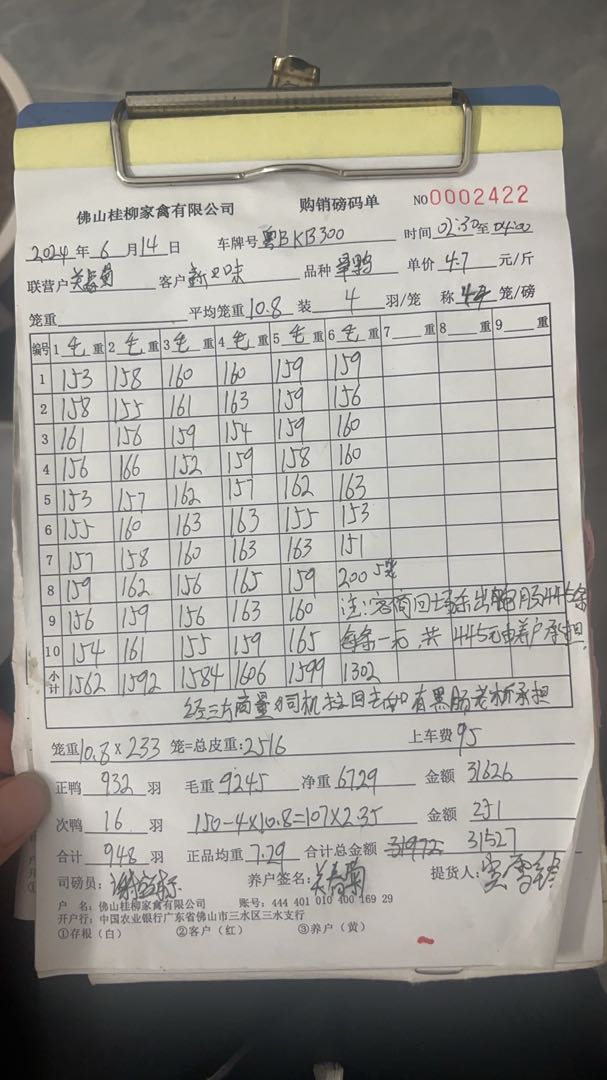 佛山桂柳家禽有限公司 购销磅码单 NO 0002422
2024年6月14日 车牌号粤BKB300 时间02:30至04:00
联营户 关春菊 客户 新口味 品种 单价 4.7 元/斤
笼重 平均笼重10.8 装 4 羽/笼 称 笼/磅
编号 1毛重 2毛重 3毛重 4毛重 5毛重 6毛重 7 重 8 重 9 重
1 153 158 160 160 159 159
2 158 155 161 163 159 156
3 161 156 159 154 159 160
4 156 166 152 159 158 160
5 153 157 162 157 162 163
6 155 160 163 163 155 153
7 157 158 160 163 163 151
8 159 162 156 165 159 200 5笼
9 156 159 156 163 160 注:客商回场杀出鸭 445条
10 154 161 155 159 165 每条一元,共445元由养户承担
小计 1562 1592 1584 1606 1599 1302
经三方商量 司机拉回去 有黑肠 承担
笼重10.8×233 笼=总皮重:2516 上车费 95
正鸭 932 羽 毛重 9245 净重 6729 金额 31626
次鸭 16 羽 150-4×10.8=107×2.35 金额 251
合计 948 羽 正品均重 7.29 合计总金额 31972 31527
司磅员: 养户签名: 关春菊 提货人:
户 名:佛山桂柳家禽有限公司 账号:444 401 010 400 169 29
开户行:中国农业银行广东省佛山市三水区三水支行
①存根(白) ②客户(红) ③养户(黄)